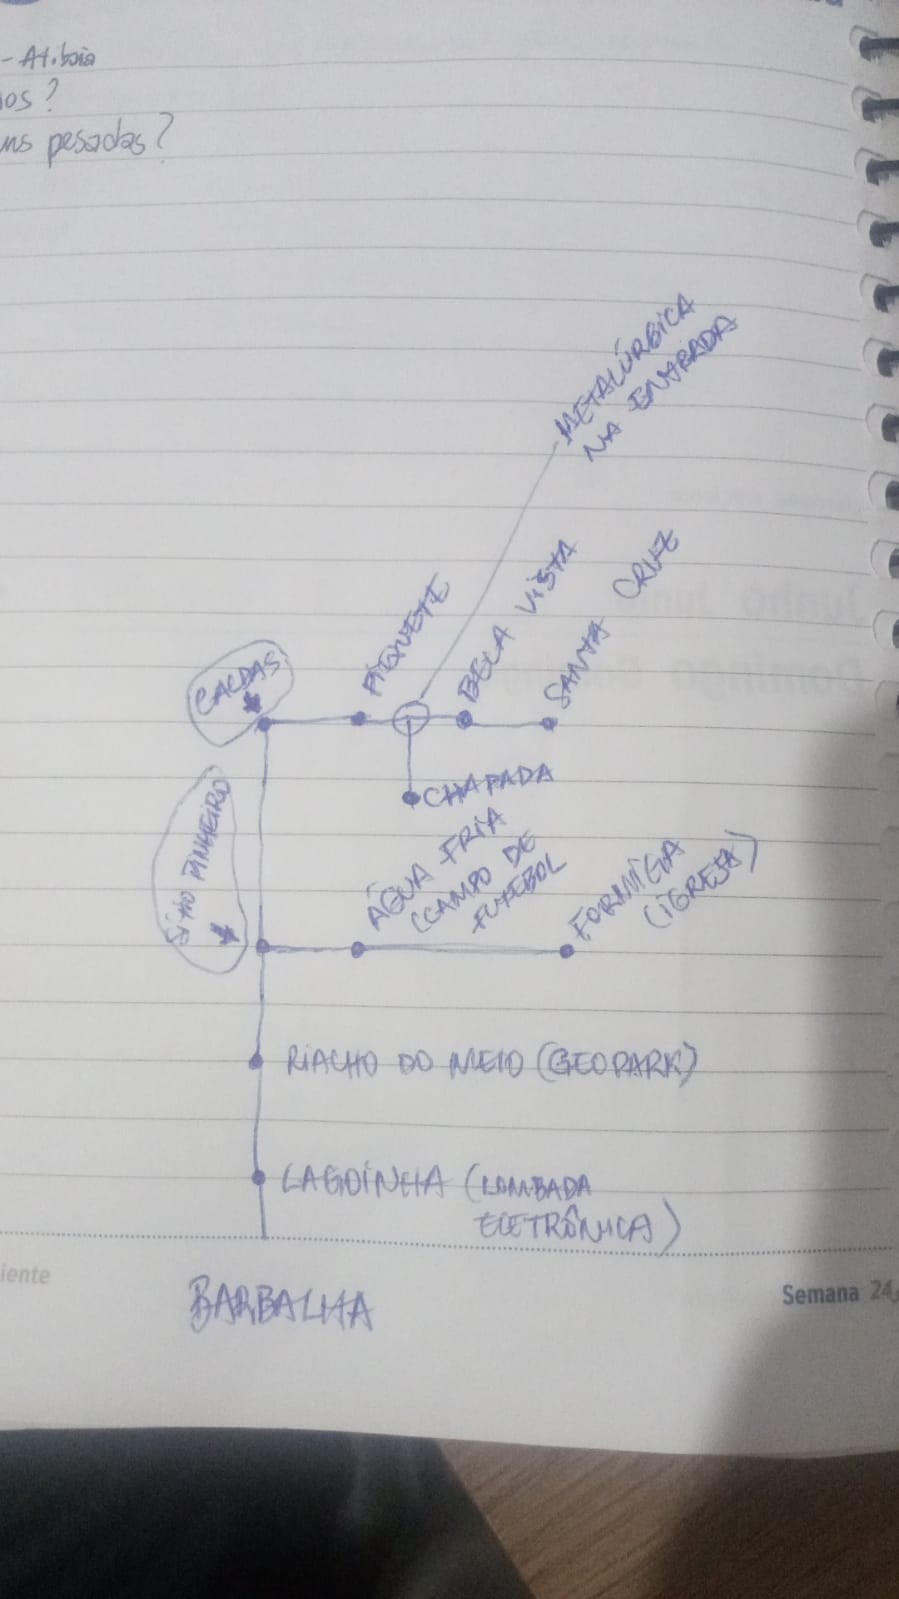 - Atibaia
os?
ns pesadas?
METALÚRGICA
NA ENTRADA
PIQUETE
BELA VISTA
SANTA CRUZ
CALDAS
CHAPADA
SÍTIO PINHEIRO
ÁGUA FRIA
(CAMPO DE
FUTEBOL
FORMIGA
(IGREJA)
RIACHO DO MEIO (GEOPARK)
LAGOINHA (LOMBADA
ELETRÔNICA)
BARBALHA
iente
Semana 24
Junho
Domingo